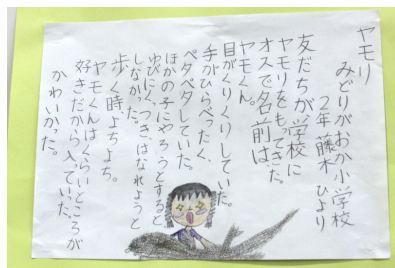 ヤモリ
みどりがおか小学校
2年 藤木 ひより
友だちが学校に
ヤモリをもってきた。
オスで名前は
ヤモくん。
目がくりくりしていた。
手がひらべったく、
ペタペタしていた。
ほかの子にやろうとすると
ゆびにくっつきはなれようと
しなかった。
歩く時よちよち。
ヤモくんはくらいところが
好きだから入っていた。
かわいかった。